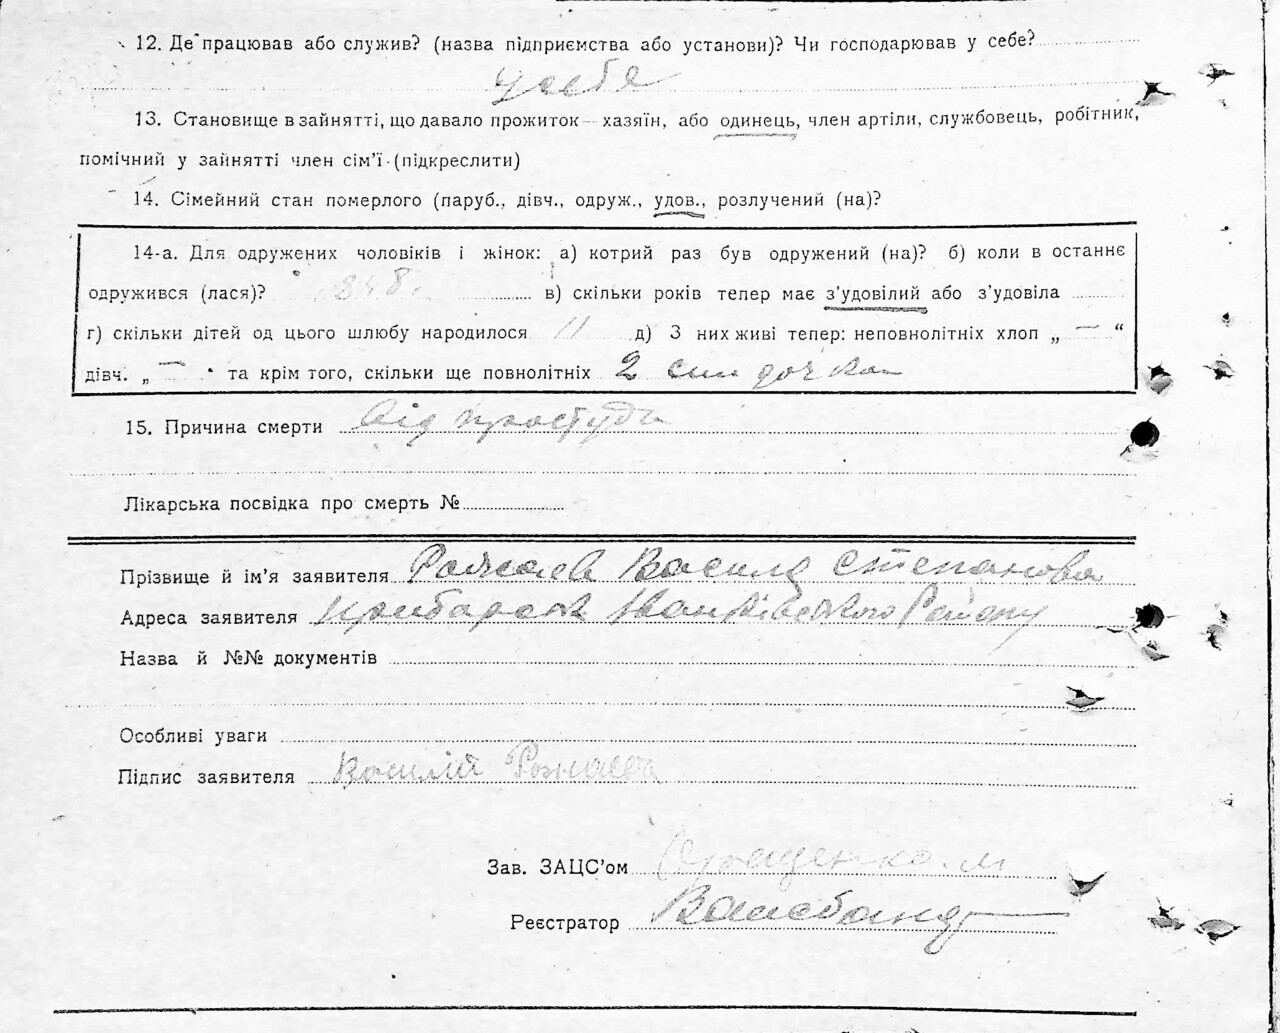 12. Де працював або служив? (назва підприємства або установи)? Чи господарював у себе?
у себе
13. Становище в зайнятті, що давало прожиток — хазяїн, або одинець, член артіли, службовець, робітник,
помічний у зайнятті член сім'ї (підкреслити)
14. Сімейний стан померлого (паруб., дівч., одруж., удов., розлучений (на)?
14-а. Для одружених чоловіків і жінок: а) котрий раз був одружений (на)? б) коли в останнє
одружився (лася)? в) скільки років тепер має з'удовілий або з'удовіла
г) скільки дітей од цього шлюбу народилося 11 д) З них живі тепер: неповнолітніх хлоп „ — “
дівч. „ — . та крім того, скільки ще повнолітніх 2 син дочка
15. Причина смерти від простуди
Лікарська посвідка про смерть №
Прізвище й ім'я заявителя Василь Степанова
Адреса заявителя Іванківського Району
Назва й №№ документів
Особливі уваги
Підпис заявителя Василій
Зав. ЗАЦС'ом
Реєстратор